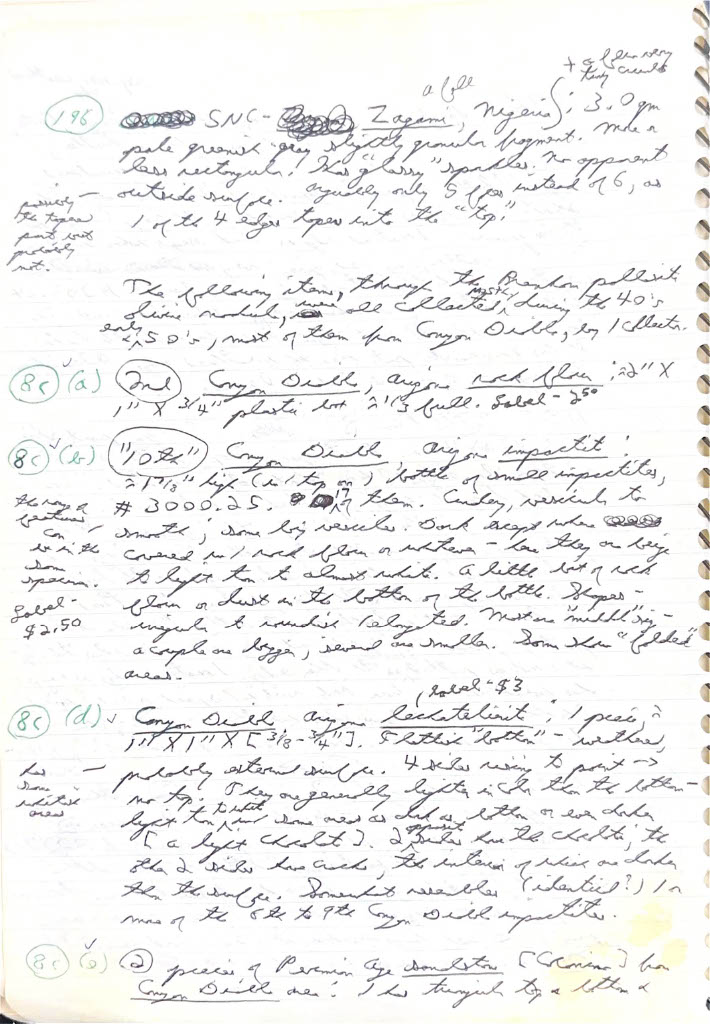 + a few very
tiny crumbs
a fall
196 SNC - Zagami, Nigeria; 3.0 gm
pale greenish gray slightly granular fragment. More or
less rectangular. Has "glassy" sparkles. No apparent
outside surface. Arguably only 5 faces instead of 6, as
1 of the 4 edges tapers into the "top."
possibly
the tapered
part but
probably
not.
The following items, through the Brenham pallasite
olivine nodule, were mostly all collected during the 40's
early 50's, most of them from Canyon Diablo, by 1 collector.
8c (a) 2nd Canyon Diablo, Arizona rock flour; ≈2" X
1" X 3/4" plastic box ≈ 1/3 full. Label - 2.50
8c (b) "10th" Canyon Diablo, Arizona impactite:
≈ 1 7/8" high (w/ top on) bottle of small impactites,
# 3000.25. 17 of them. Cindery, vesicular to
smooth; some big vesicles. Dark except where
covered w/ rock flour or whatever - here they are beige
to light tan to almost white. A little bit of rock
flour or dust in the bottom of the bottle. Shapes -
irregular to roundish elongated. Most are "middle" size -
a couple are bigger, several are smaller. Some show "folded"
areas.
features
can
be in the
same
specimen.
Label -
$2.50
, Label - $3
8c (d) Canyon Diablo Arizona lechatelierite; 1 piece, ≈
1" X 1" X [3/8 - 3/4"]. Flattish "bottom" - weathered,
probably external surface. 4 sides rising to point →
no top. They are generally lighter in color than the bottom -
light tan, to white but some areas as dark as bottom or even darker
[a light chocolate]. 2 opposite sides have the chocolate, the
other 2 sides have cracks, the interior of which are darker
than the surface. Somewhat resembles (identical?) 1 or
more of the 8th to 9th Canyon Diablo impactites.
has
some
whitish
areas
8c (e) 2 pieces of Permian age sandstone [Coconino] from
Canyon Diablo area: 1 has triangular top & bottom &